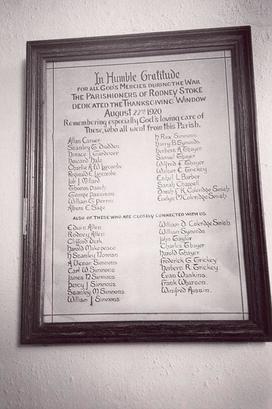 In Humble Gratitude
FOR ALL GOD'S MERCIES DURING THE WAR
THE PARISHIONERS OF RODNEY STOKE
DEDICATED THE THANKSGIVING WINDOW
AUGUST 22nd 1920
Remembering especially God's loving care of
These, who all went from this Parish.
Allan Carver
Stanley G. Dadden
Horace J. Gardener
Edward Hale
Charles A.W.
Reginald E.
Job J. Millard
Thomas
George
William G. Perrin
Albert E. Sage
H. Rex Simmons
Harry B. Symonds
Herbert A. Thayer
Samuel Thayer
Wilfred E. Thayer
Wilfred E. Trickey
Ethel L. Barber
Sarah Chappell
R. Coleridge Smith
M. Coleridge Smith
ALSO OF THESE WHO ARE CLOSELY CONNECTED WITH US.
Edwin Allen
Rodney Allen
Clifford Derk
Harold Makepeace
H. Stanley Norman
A. Decor Simmons
Carl W. Simmons
James N. Simmons
Percy J. Simmons
Stanley M. Simmons
William J. Simmons
William D. Coleridge Smith
William Symonds
John Taylor
Charles Thayer
Harold Thayer
Frederick G. Trickey
Herbert R. Trickey
Evan Watkins
Frank Wharton
Winifred Russin